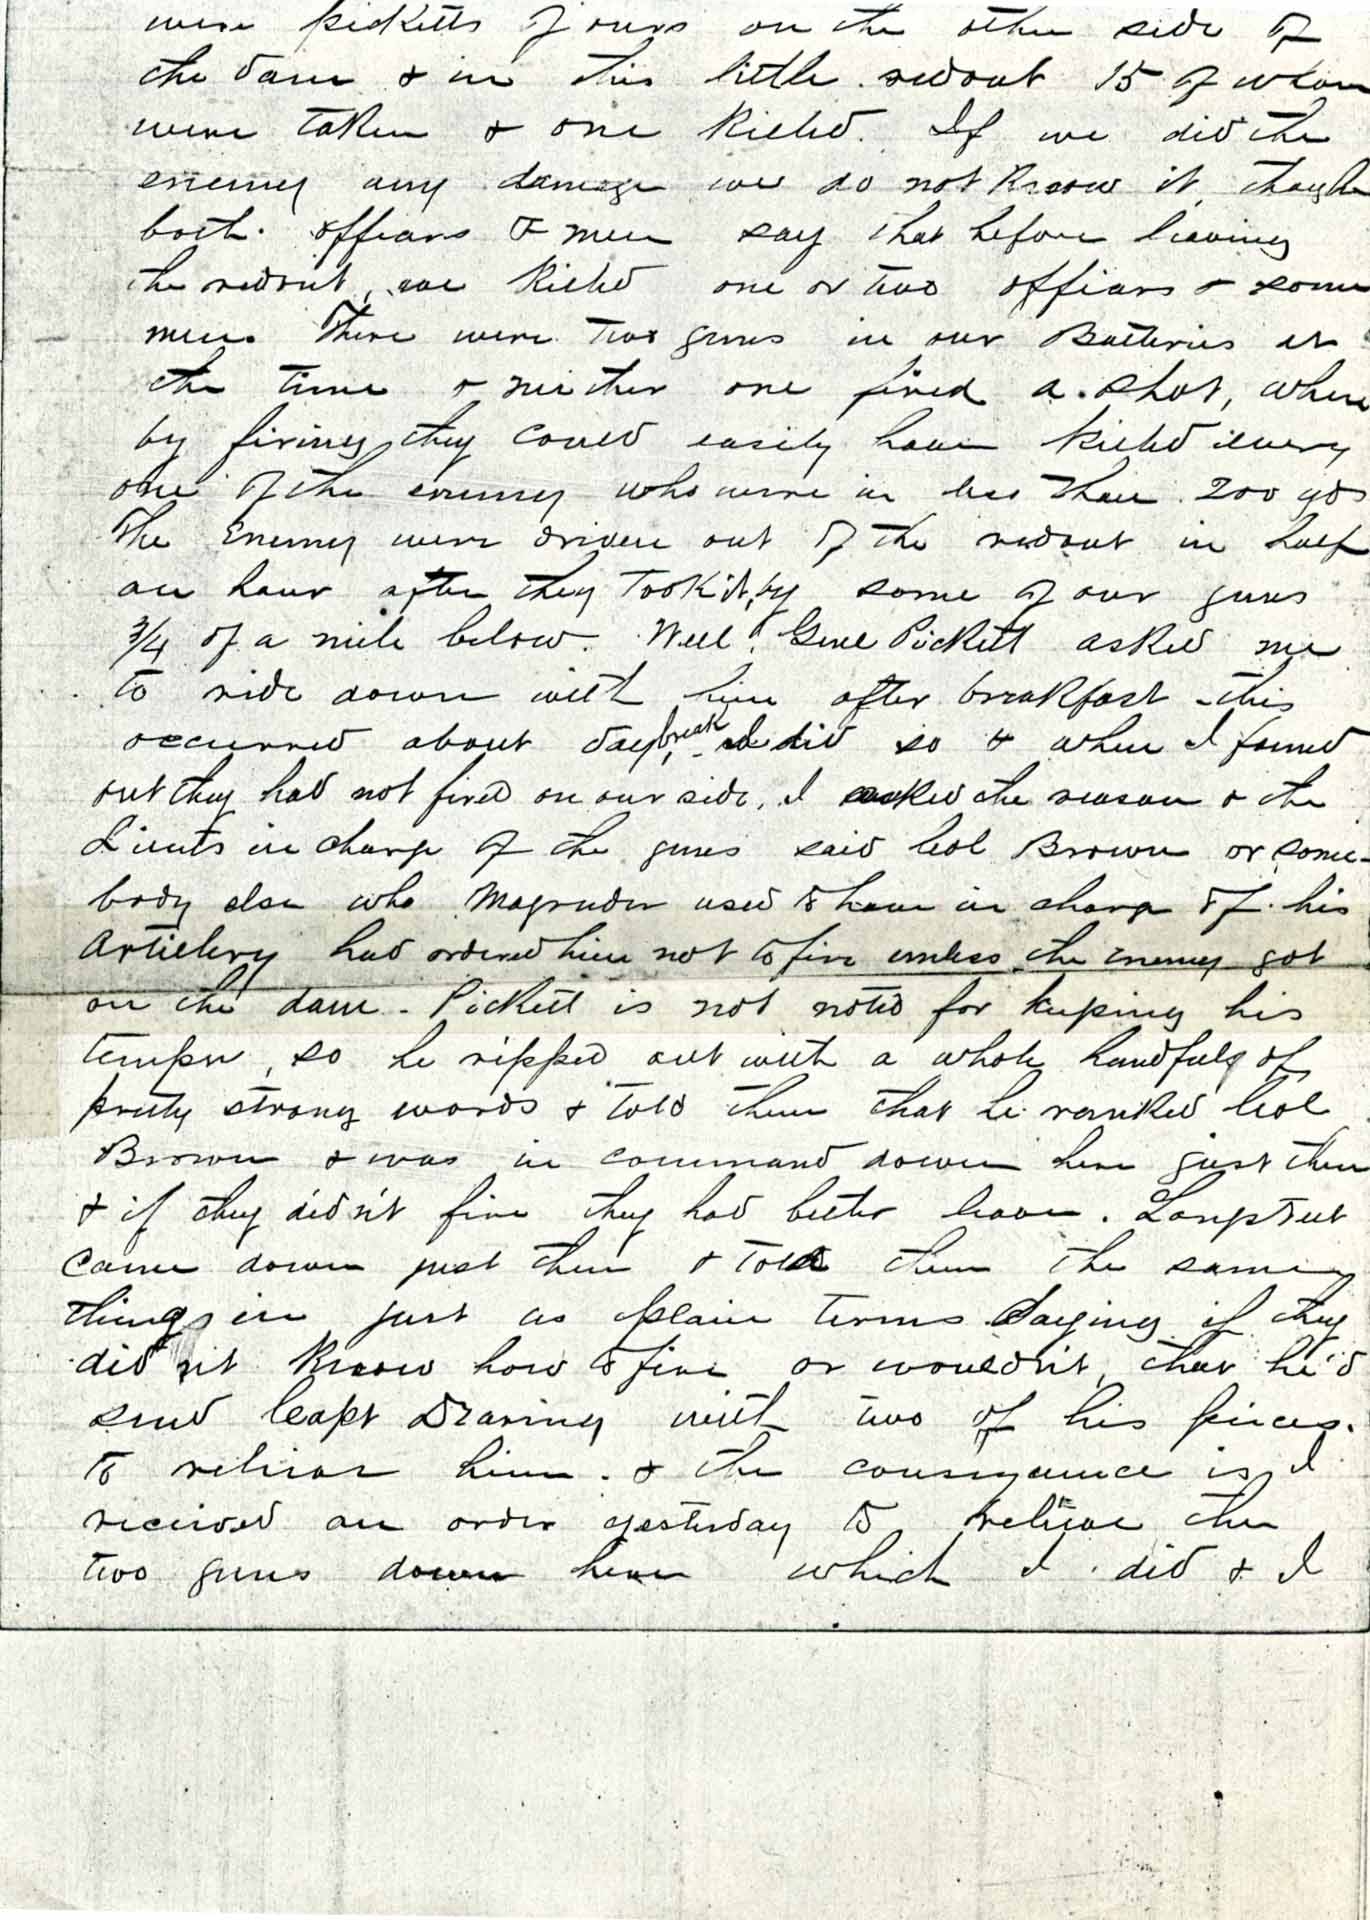 were picketts of ours on the other side of
the dam & in this little redout 15 of whom
were taken & one killed. If we did the
enemy any damage we do not know it, though
both officers & men say that before leaving
the redout, we killed one or two officers & some
men. There were two guns in our Batteries at
the time & neither one fired a shot, where
by firing they could easily have killed every
one of the enemy who were in less than 200 yds
The Enemy were driven out of the redout in half
an hour after they took it, by some of our guns
3/4 of a mile below. Well, Genl Pickett asked me
to ride down with him after breakfast - this
occurred about daybreak I did so & when I found
out they had not fired on our side, I asked the reason & the
Lieuts in charge of the guns said Col Brown or some-
body else who Magruder used to have in charge of his
Artillery had ordered him not to fire unless the enemy got
on the dam - Pickett is not noted for keeping his
temper, so he ripped out with a whole handfull of
pretty strong words & told them that he ranked Col
Brown & was in command down here just then
& if they didn't fire they had better leave. Longstreet
came down just then & told them the same
things in just as plain terms saying if they
did n't know how to fire or wouldn't, that he'd
send Capt Dearing with two of his pieces.
to relieve him. & the consequence is, I
received an order yesterday to relieve the
two guns down here which I did & I